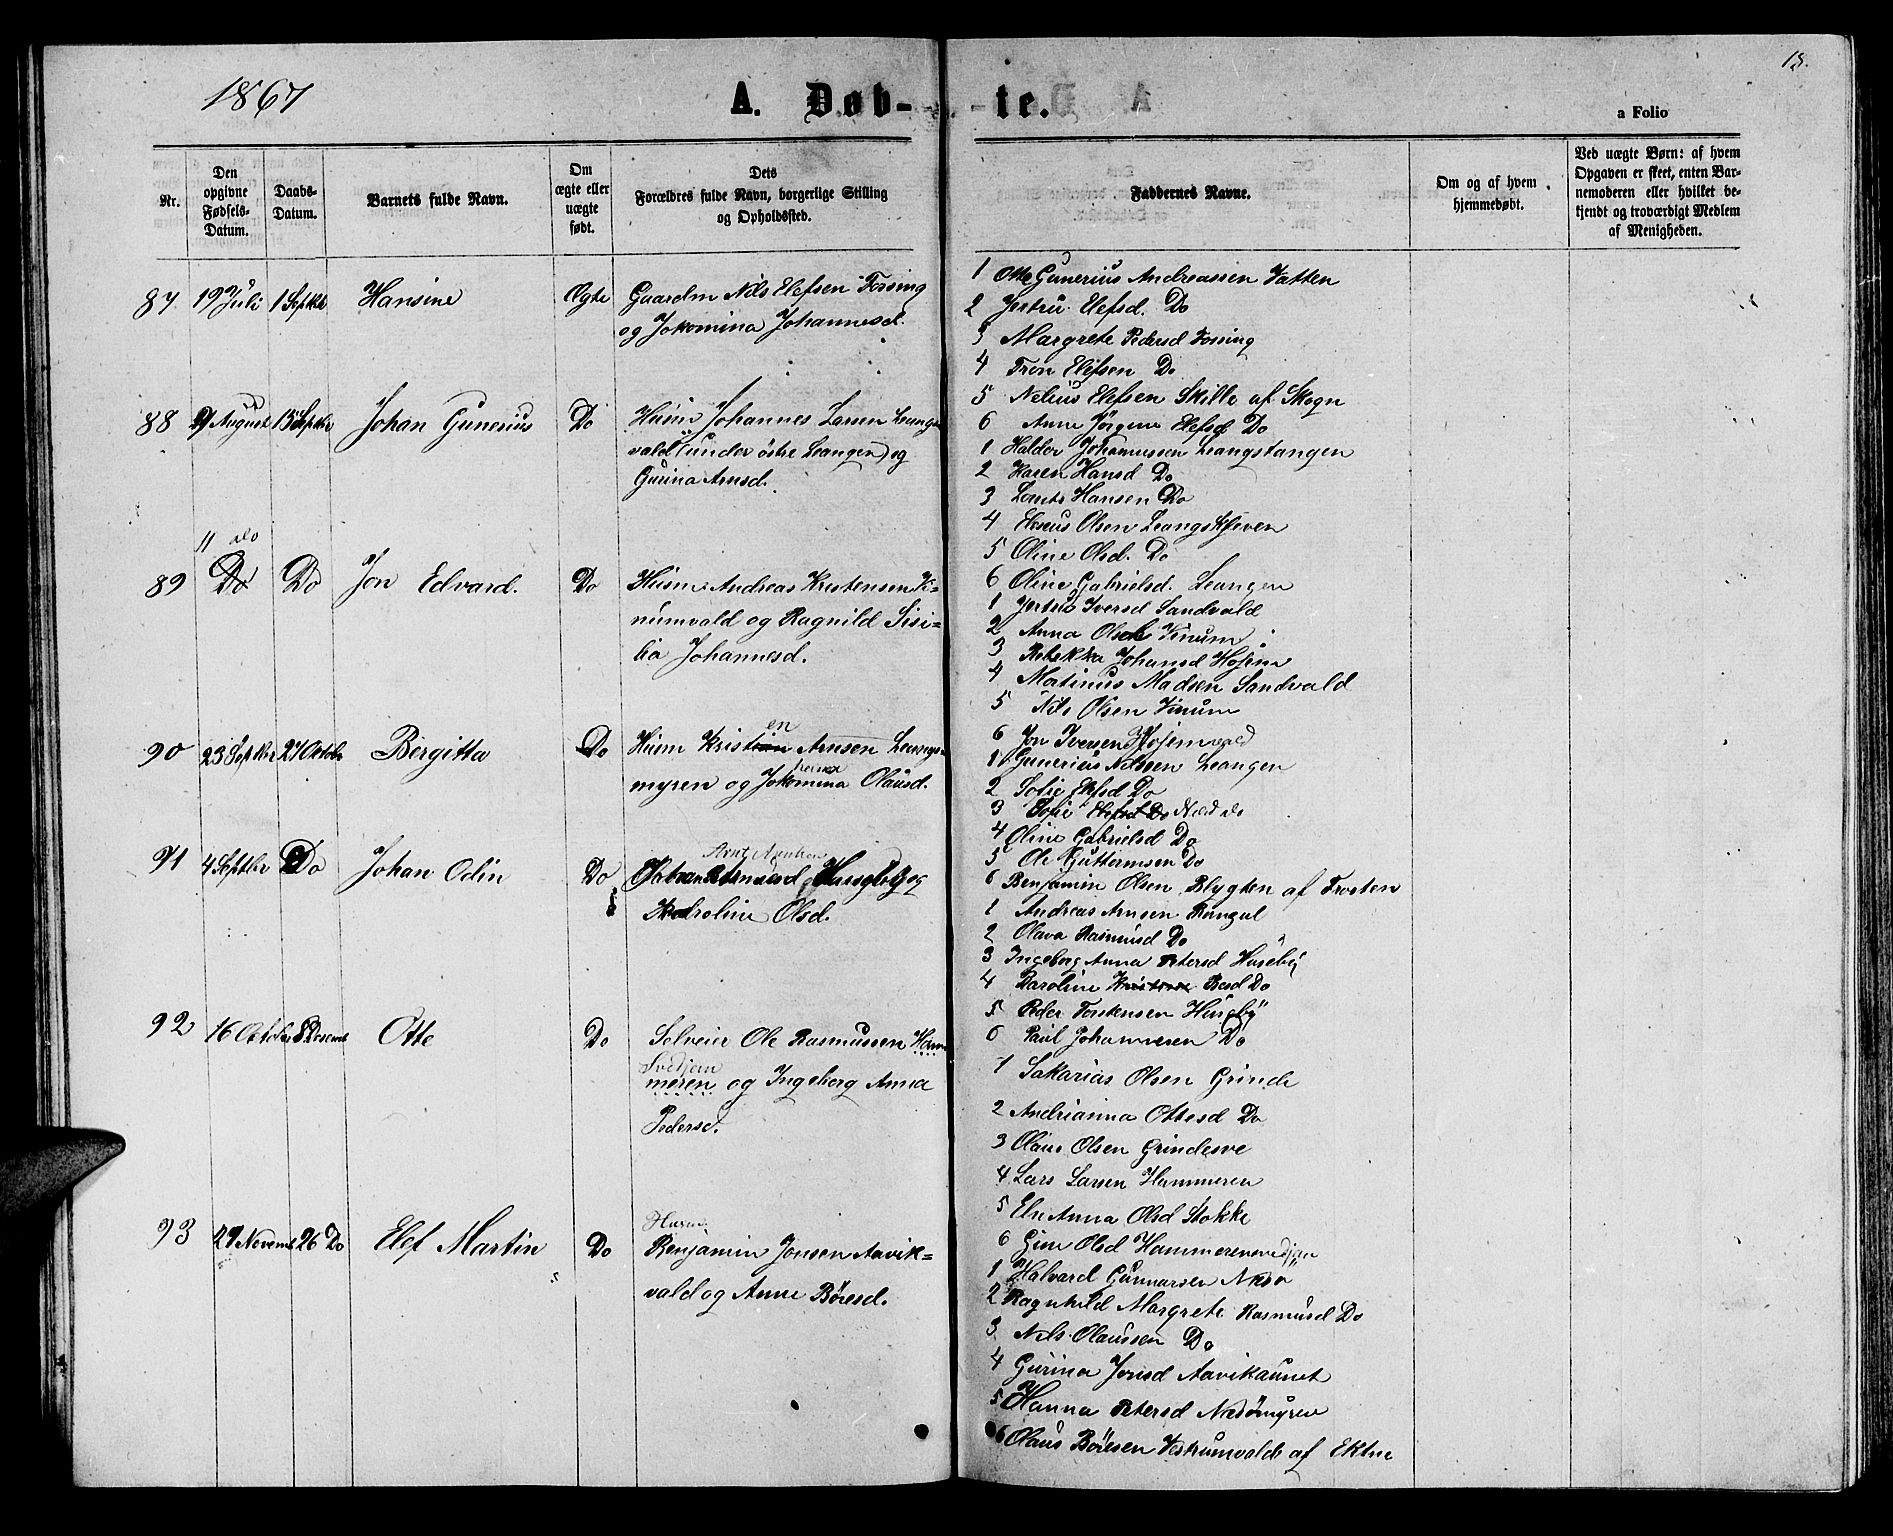 1867
A. Døb-
-te.
18.
a Folio
Nr.
Den opgivne Fødsels-Datum.
Daabs-Datum.
Barnets fulde Navn.
Om ægte eller uægte født.
Dets Forældres fulde Navn, borgerlige Stilling og Opholdssted.
Faddernes Navne.
Om og af hvem hjemmedøbt.
Ved uægte Børn: af hvem Opgaven er skeet, enten Barnemoderen eller hvilket betjendt og troværdigt Medlem af Menigheden.
87 19 Juli 1 Septbr Hansine Ægte Gaardm Nils Elefsen Fossing
og Jokomina Johannesd.
1 Otte Gunerius Andreassen Vatten
2 Jertru Elefsd. Do
3 Margrete Pedersd Fossing
4 Tron Elefsen Do
5 Nelius Elefsen Skille af Skogn
6 Anne Jørgine Elefsd Do
88 9 August 15 Septbr Johan Gunerius Do Husm Johannes Larsen Leangs
vald (under østre Leangen) og
Gurina Arnsd.
1 Haldor Johannessen Leangstangen
2 Karen Hansd Do
3 Lorits Hansen Do
4 Eliseus Olsen Leangskleven
5 Oline Olsd. Do
6 Oline Gabrielsd. Leangen
89 11 do Do Jon Edvard. Do Husm Andreas Kristensen Vi-
numvald og Ragnild Sisi-
lia Johannesd.
1 Jertru Iversd Sandvald
2 Anna Olsd Vinum
3 Rebekka Johansd Hojem
4 Martinus Madsen Sandvald
5 Nils Olsen Vinum
6 Jon Iversen Hojemvald
90 23 Septbr 27 Octobr Bergitta Do Husm Kristen Arnsen Leangs
myren og Jokomina Olausd.
1 Gunerius Nilssen Leangen
2 Sofie Elefsd Do
3 Tofie Elefsd Do Nilsd do
4 Oline Gabrielsd Do
5 Ole Guttormsen Do
6 Benjamin Olsen Blygten af Frosten
91 4 Septbr Do Johan Odin Do Arnt Arntsen
Husgbey og
Karoline Olsd.
1 Andreas Arnsen Ranzul
2 Olava Rasmusd Do
3 Ingeborg Anna Petersd Huseby
4 Karoline Do
5 Peder Torstensen Husgby
6 Paul Johannesen Do
92 16 October 8 Desemb Otte Do Selveier Ole Rasmussen Ham
Svedjem
meren og Ingeborg Anna
Pedersd.
1 Sakarias Olsen Grinde
2 Andrianna Ottesd Do
3 Olaus Olsen Grindesve
4 Lars Larsen Hammeren
5 Elen Anna Olsd Stokke
6 Guru Olsd Hammerenevedjan
93 29 Novemb 26 Do Elef Martin Do Husm
Benjamin Jonsen Aavik=
vald og Anne Børesd.
1 Halvard Gunnarsen Nesø
2 Ragnhild Margrete Rasmusd Do
3 Nils Olaussen Do
4 Gurina Jonsd Aavikaunet
5 Hanna Petersd Nesømyren
6 Olaus Børesen Veskumvald af Ektne